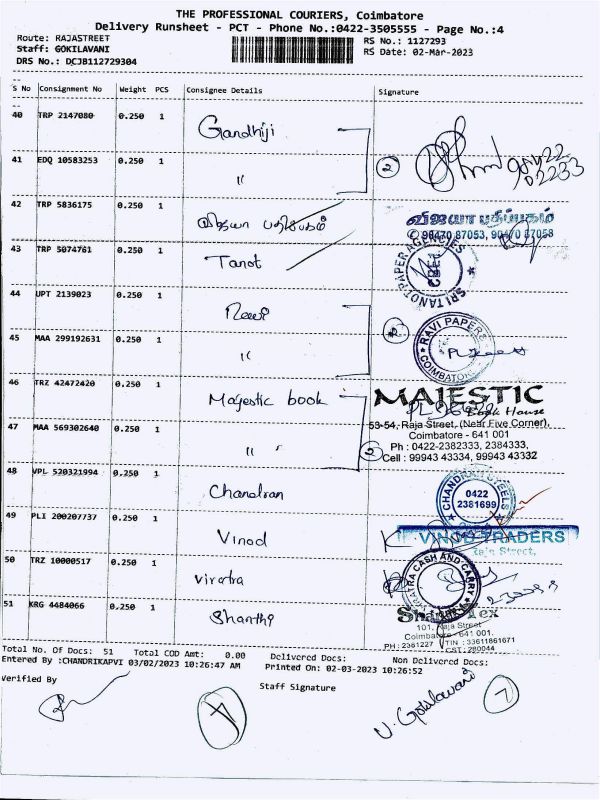 THE PROFESSIONAL COURIERS, Coimbatore
Delivery Runsheet - PCT - Phone No.:0422-3505555 - Page No.:4
Route: RAJASTREET
RS No.: 1127293
Staff: GOKILAVANI
RS Date: 02-Mar-2023
DRS No.: DCJB112729304
S No Consignment No Weight PCS Consignee Details Signature
40 TRP 2147080 0.250 1 Gandhiji
41 EDQ 10583253 0.250 1 "
2
42 TRP 5836175 0.250 1 விஜயா பதிப்பகம்
விஜயா பதிப்பகம்
90470 87053, 90470 87058
43 TRP 5074761 0.250 1 Tanot
SRI TANOT PAPER AGENCIES
44 UPT 2139023 0.250 1
RAVI PAPERS
COIMBATORE
45 MAA 299192631 0.250 1 "
46 TRZ 42472420 0.250 1 Majestic book
MAJESTIC
Book House
47 MAA 569302640 0.250 1 "
53-54, Raja Street, (Near Five Corner),
Coimbatore - 641 001
Ph : 0422-2382333, 2384333,
2 Cell : 99943 43334, 99943 43332
48 VPL 520321994 0.250 1 Chandran
CHANDRAN STEELS
0422
2381699
49 PLI 200207737 0.250 1 Vinod
VINOD TRADERS
Raja Street,
50 TRZ 10000517 0.250 1 Viratra
VIRATRA CASH AND CARRY
51 KRG 4484066 0.250 1 Shanthi
101, Raja Street
Coimbatore - 641 001.
PH : 2381227 TIN : 33611861671
CST : 280044
Total No. Of Docs: 51 Total COD Amt: 0.00 Delivered Docs: Non Delivered Docs:
Entered By :CHANDRIKAPVI 03/02/2023 10:26:47 AM Printed On: 02-03-2023 10:26:52
Verified By
Staff Signature
V. Gokilavani
7